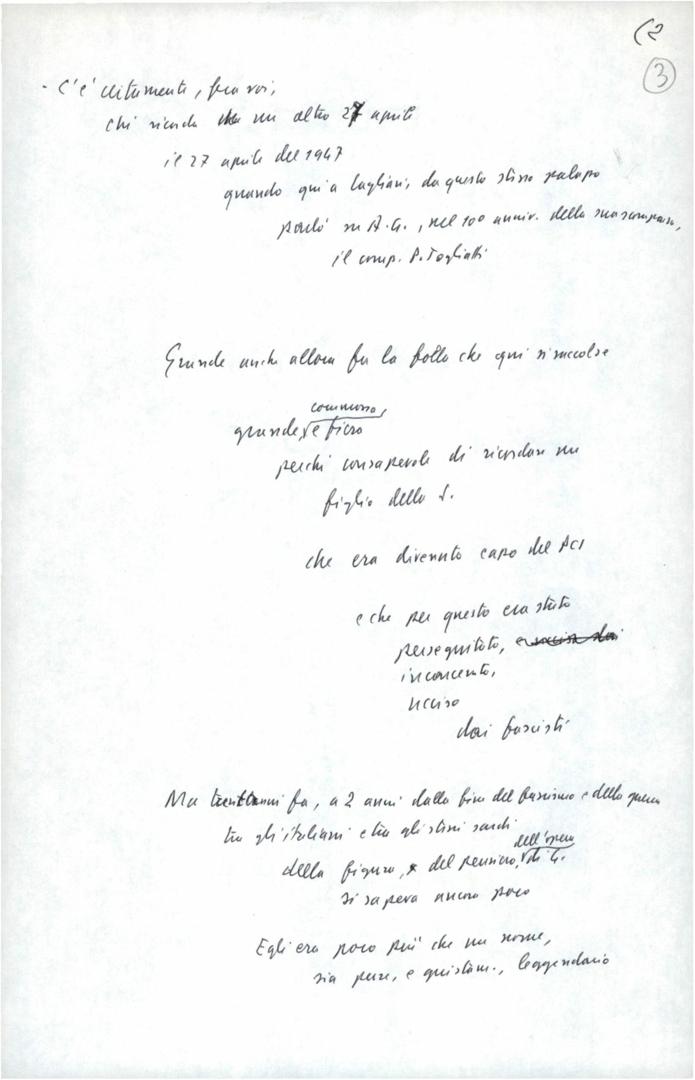 (2
3
- C'è certamente, fra voi,
chi ricorda un altro 27 aprile
il 27 aprile del 1947
quando qui a Cagliari, da questo stesso palazzo
parlò su A. G., nel 10º anniv. della sua scomparsa,
il comp. P. Togliatti
Grande anche allora fu la folla che qui si raccolse
commossa,
grande, e fiera
perché consapevole di ricordare un
figlio della S.
che era divenuto capo del PCI
e che per questo era stato
perseguitato, e ucciso dai
incarcerato,
ucciso
dai fascisti
Ma trent'anni fa, a 2 anni dalla fine del fascismo e della guerra
tra gli italiani e tra gli stessi sardi
dell'opera
della figura, del pensiero, di G.
si sapeva ancora poco
Egli era poco più che un nome,
sia pure, e giustam., leggendario